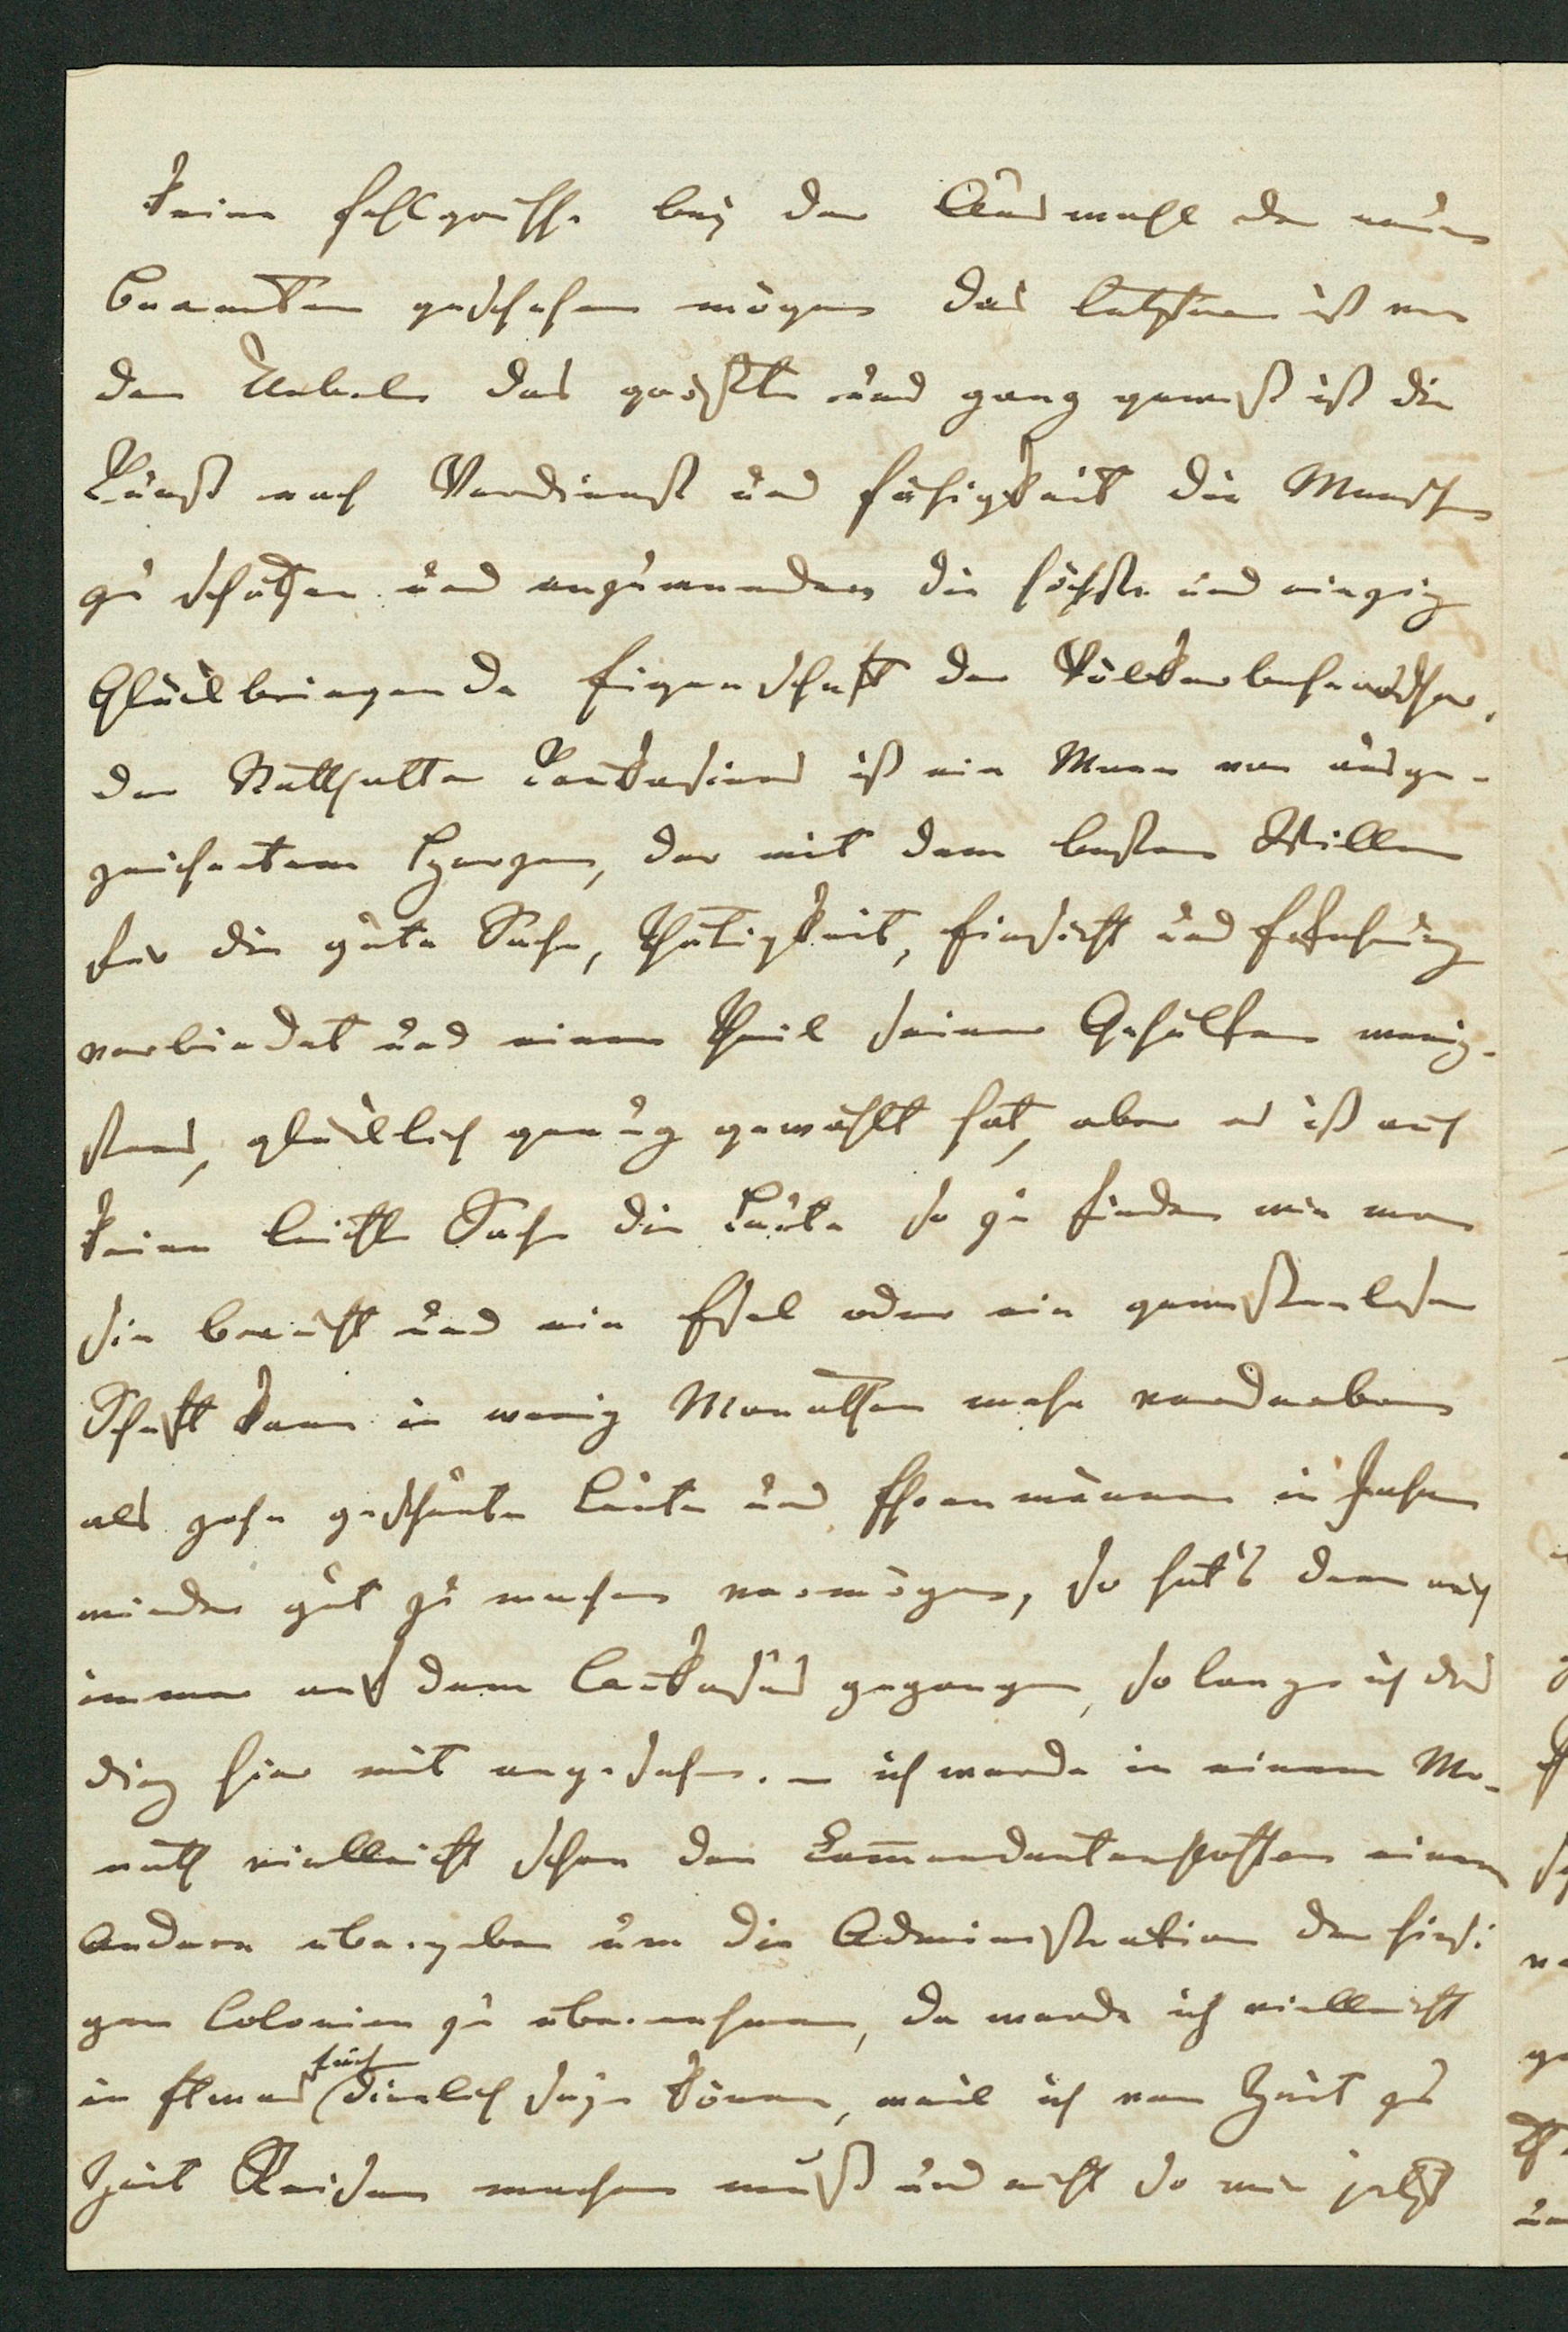 keine fehlgriffe bey der Auswahl der neuen
Beamten geschehen mögen das letztere ist von
den Uebeln das gröste und ganz gewiß ist die
Kunst nach Verdienst und fähigkeit die Menschen
zu schätzen und anzuwenden die höchste und einzig
Glückbringende Eigenschaft der Völkerbeherscher,
der Statthalter Kaukasiens ist ein Mann von ausge-
zeichnetem Herzen, der mit dem besten Willen
fur die gute Sache, Thätigkeit, Einsicht und Erfahrung
verbindet und einen Theil seiner Gehülfen wenig-
stens, glücklich genug gewählt hat, aber es ist auch
keine leichte Sache die Leute so zu finden wie man
sie braucht und ein Esel oder ein gewissenloser
Schuft kann in wenig Monathen mehr verderben
als zehn gescheute Leute und Ehrenmänner in Jahren
wieder gut zu machen vermögen, so hat's denn auch
immer auf dem Caukasus gegangen, so lange ich das
ding hier mit angesehen. – ich werde in einem Mo-
nath vielleicht schon den Com̅andantenposten einem
Andern ubergeben um die Administration der hiesi
gen Colonien zu ubernehmen, da werde ich vielleicht
in Etwas Euch dienlich seyn können, weil ich von Zeit zu
Zeit Reisen machen muß und nicht so wie jetzt